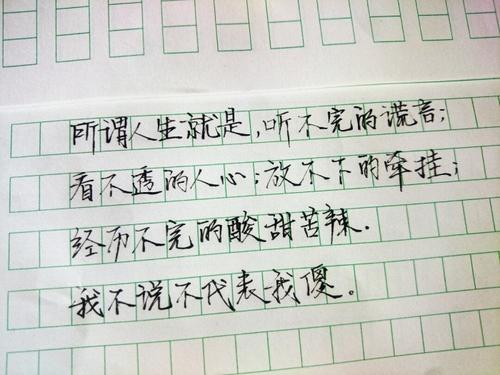 所谓人生就是，听不完的谎言；
看不透的人心；放不下的牵挂；
经历不完的酸甜苦辣．
我不说不代表我傻。